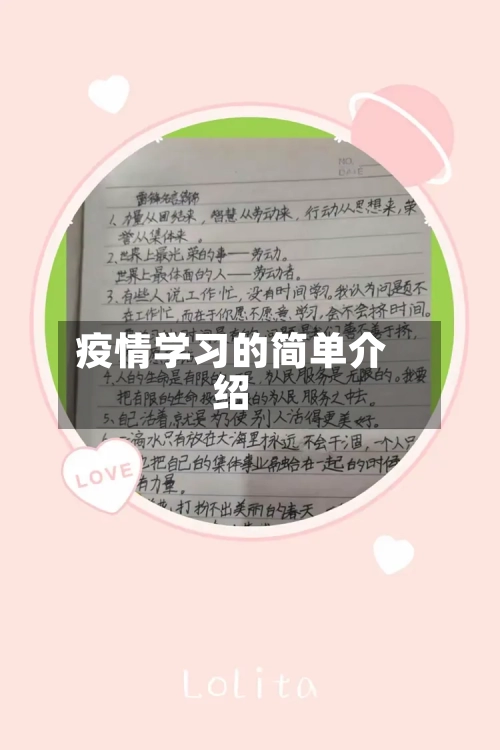 NO.
DATE
雷锋名言摘抄
1、力量从团结来，智慧从劳动来，行动从思想来，荣
誉从集体来。
2、世界上最光荣的事——劳动。
世界上最体面的人——劳动者。
3、有些人说工作忙，没有时间学习。我认为问题不
在工作忙，而在于你愿不愿意学习，会不会挤时间。
疫情学习的简单介
绍
4、人的生命是有限的，为人民服务是无限的。我要
把有限的生命
为人民服务之中去。
5、自己活着，就是为了使别人活得更美好。
一滴水只有放在大海里永远不会干涸，一个人只
把自己的集体事业
在一起的时候
有力量。
打扮不出美丽的春天
LOVE
Lolita